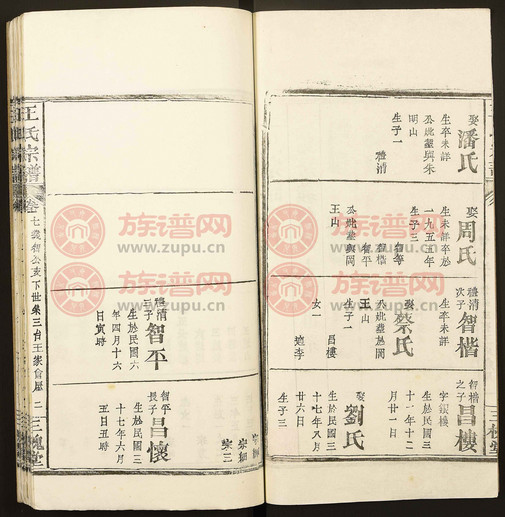 娶潘氏
生卒未詳
公妣墓與朱
明山
生子一
禮清
娶周氏
生卒未詳卒於
一九五五年
生子三
智楷
智平
公妣墓與岡
王山
禮清
次子智楷
生卒未詳
娶蔡氏
公妣墓
王山
生子一
昌樓
女一
適李
智楷
之子昌樓
字銀樓
生於民國三
十一年十二
月廿一日
娶劉氏
生於民國三
十七年八月
廿六日
生子三
家三
禮清
三子智平
生於民國六
年四月十六
日寅時
智平
長子昌懷
生於民國三
十七年六月
五日丑時
王氏宗譜
卷七
三槐堂
族谱网
www.zupu.cn
族谱网
www.zupu.cn
族谱网
www.zupu.cn
族谱网
www.zupu.cn